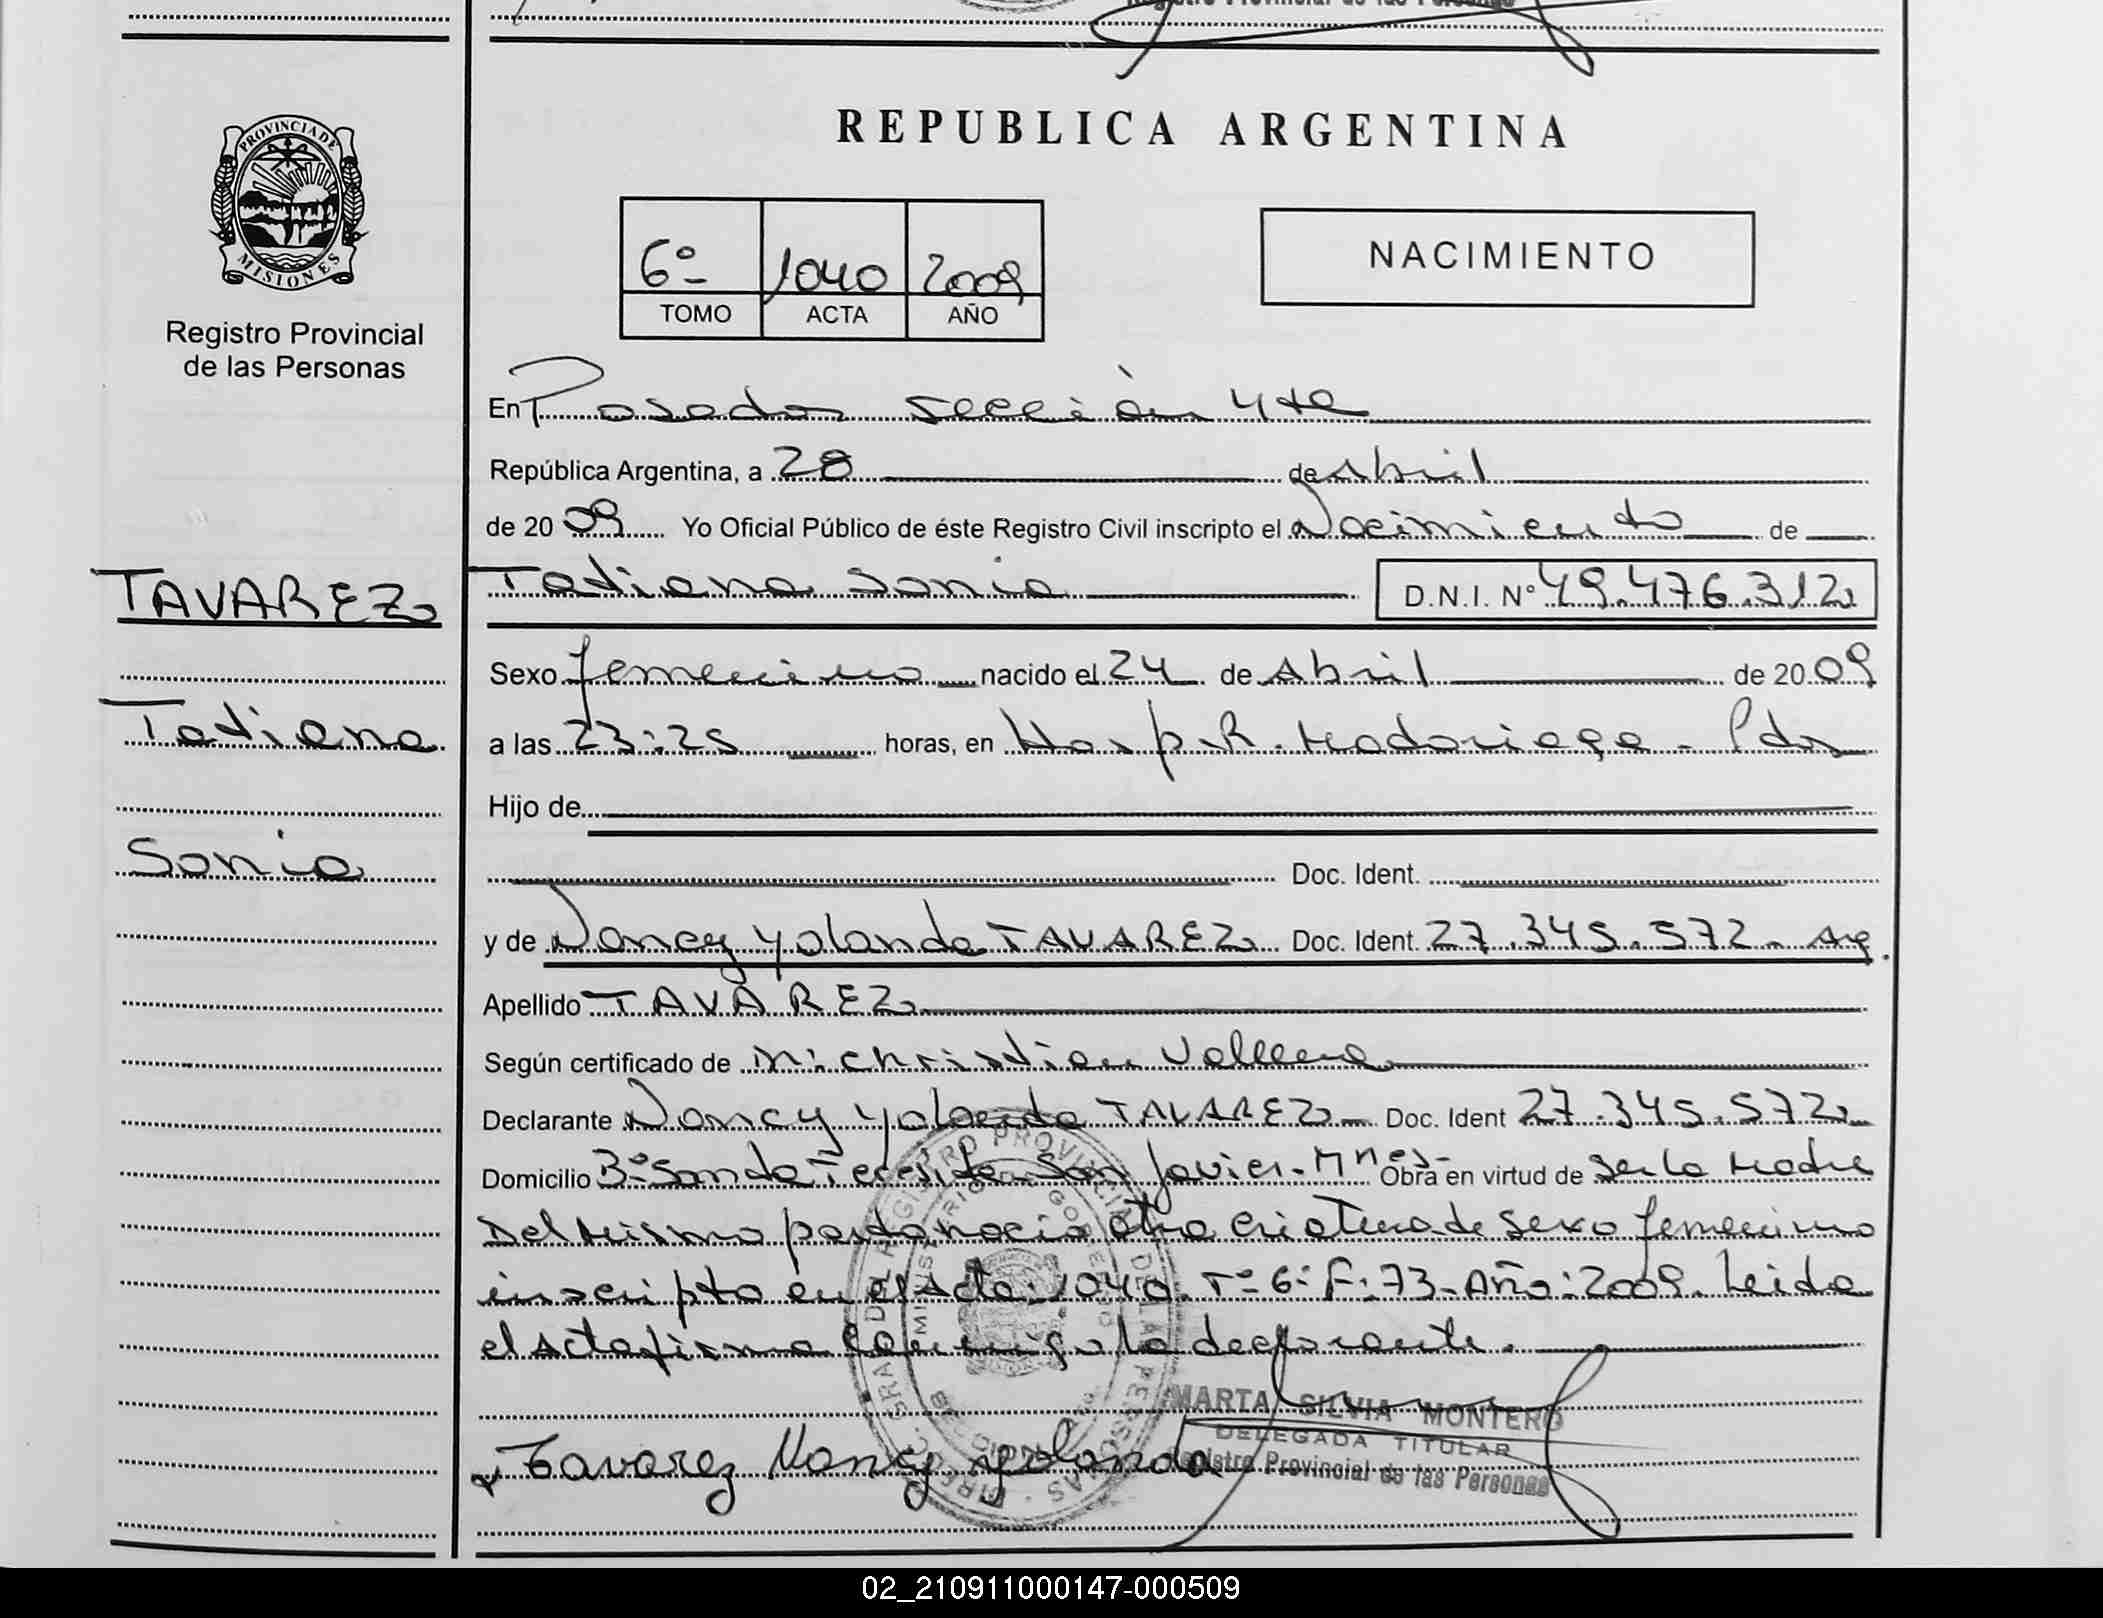 Registro Provincial de las Personas
PROVINCIA DE
MISIONES
Registro Provincial
de las Personas
REPUBLICA ARGENTINA
6º 1040 2009
TOMO ACTA AÑO
NACIMIENTO
En Posadas sección 4ta
República Argentina, a 28 de Abril
de 2009 Yo Oficial Público de éste Registro Civil inscripto el Nacimiento de
TAVAREZ
Tatiana Sonia D.N.I. Nº 49.476.312
Sexo femenino nacido el 24 de Abril de 2009
Tatiana
a las 23:25 horas, en Hosp. R. Madariaga - Pdas
Hijo de
Sonia
Doc. Ident.
y de Nancy Yolanda TAVAREZ Doc. Ident. 27.345.572 - Arg.
Apellido TAVAREZ
Según certificado de Christian
Declarante Nancy Yolanda TAVAREZ Doc. Ident 27.345.572
Domicilio Bº Santa Teresita San Javier - Mnes - Obra en virtud de ser la Madre
Del mismo parto nació otra criatura de sexo femenino
inscripto en el Acta: 1040. Tº 6º F: 73 - Año: 2009. Leida
el Acta firma conmigo la declarante.
MARTA SILVIA MONTERO
DELEGADA TITULAR
Registro Provincial de las Personas
Tavarez Nancy Yolanda
02_210911000147-000509